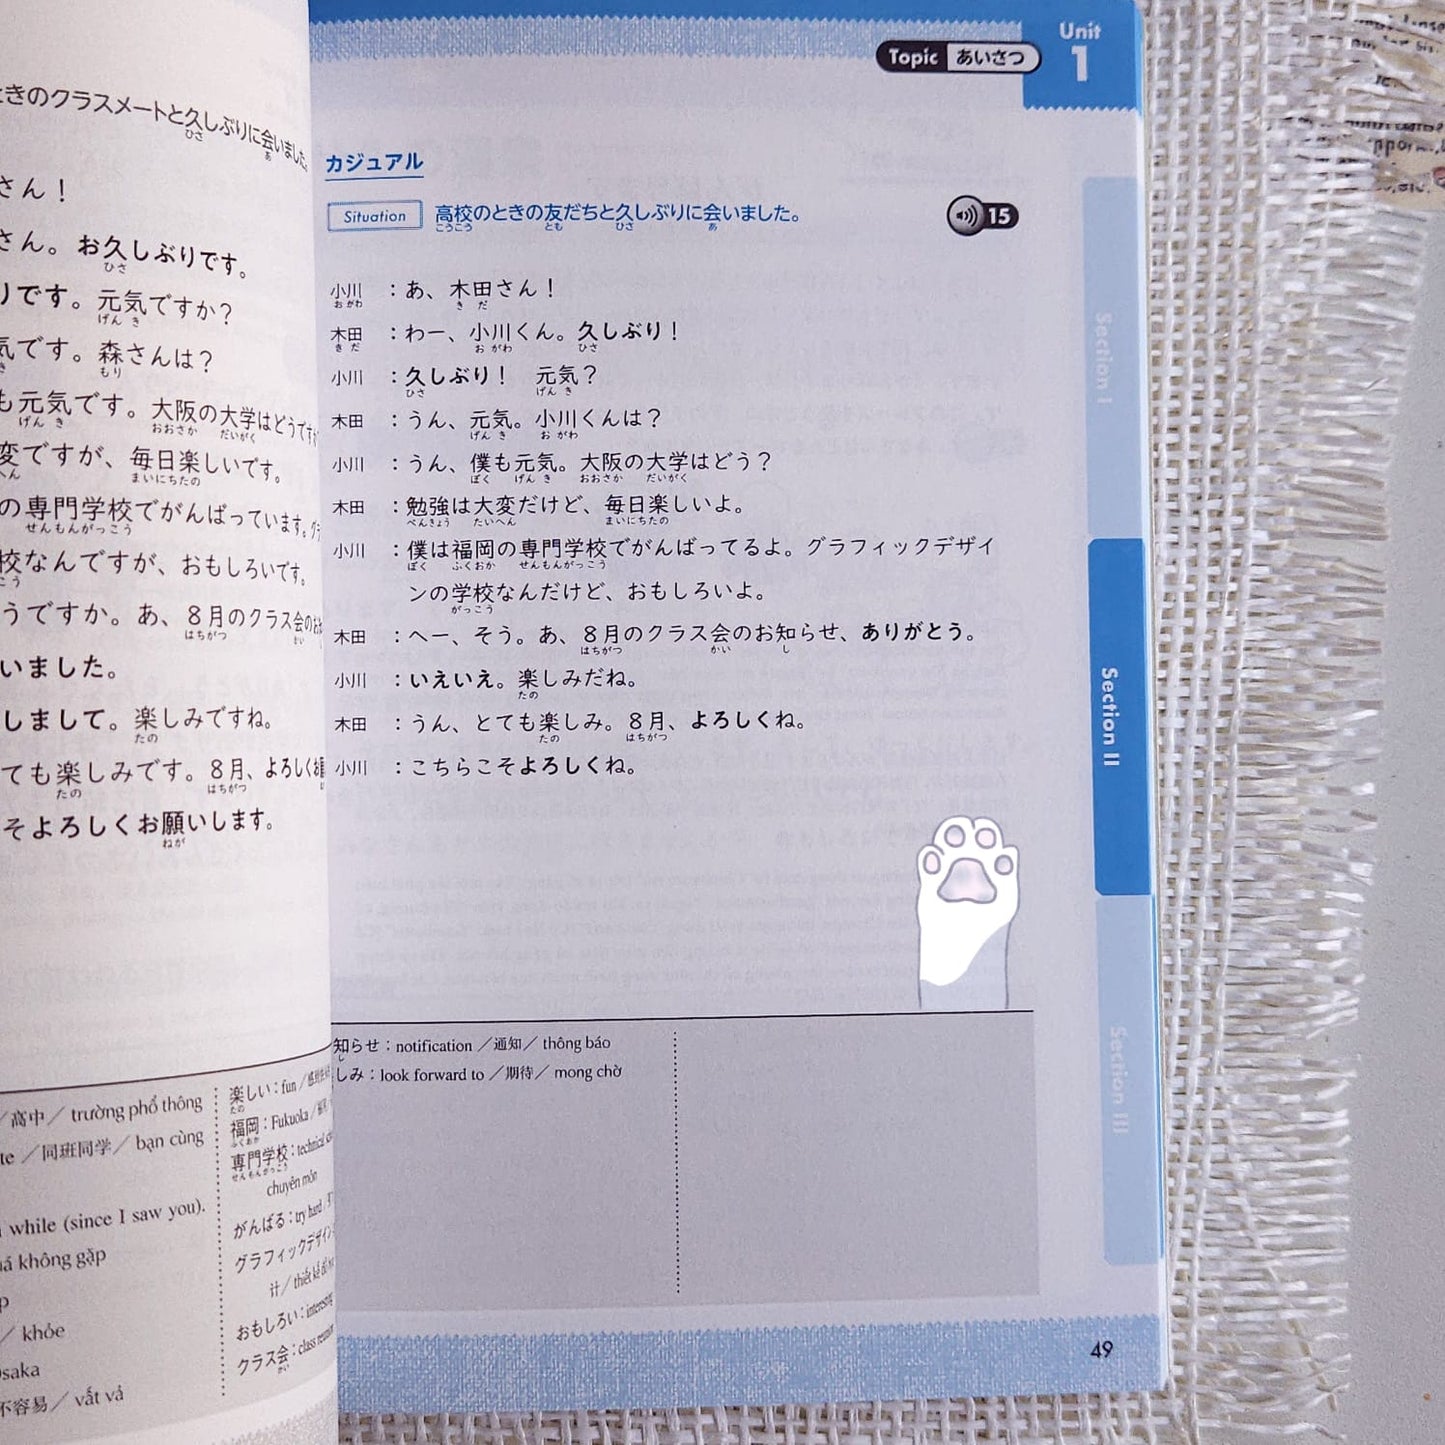 ときのクラスメートと久しぶりに会いました。
さん！
さん。お久しぶりです。
りです。元気ですか？
気です。森さんは？
も元気です。大阪の大学はどうですか
変ですが、毎日楽しいです。
の専門学校でがんばっています。グラ
校なんですが、おもしろいです。
うですか。あ、８月のクラス会のお
いました。
しまして。楽しみですね。
ても楽しみです。８月、よろしくお
そよろしくお願いします。
／高中／ trường phổ thông
te ／同班同学／ bạn cùng
while (since I saw you).
á không gặp
p
／ khỏe
saka
不容易／ vất vả
楽しい：fun／
福岡：Fukuoka／
専門学校：technical
chuyên môn
がんばる：try hard／
グラフィックデザイン
计／ thiết kế đồ
おもしろい：interesting
クラス会：class reunion
Topic あいさつ
Unit
1
カジュアル
Situation 高校のときの友だちと久しぶりに会いました。 15
小川：あ、木田さん！
木田：わー、小川くん。久しぶり！
小川：久しぶり！　元気？
木田：うん、元気。小川くんは？
小川：うん、僕も元気。大阪の大学はどう？
木田：勉強は大変だけど、毎日楽しいよ。
小川：僕は福岡の専門学校でがんばってるよ。グラフィックデザイ
ンの学校なんだけど、おもしろいよ。
木田：へー、そう。あ、８月のクラス会のお知らせ、ありがとう。
小川：いえいえ。楽しみだね。
木田：うん、とても楽しみ。８月、よろしくね。
小川：こちらこそよろしくね。
知らせ：notification ／通知／ thông báo
しみ：look forward to ／期待／ mong chờ
Section I
Section II
Section III
49